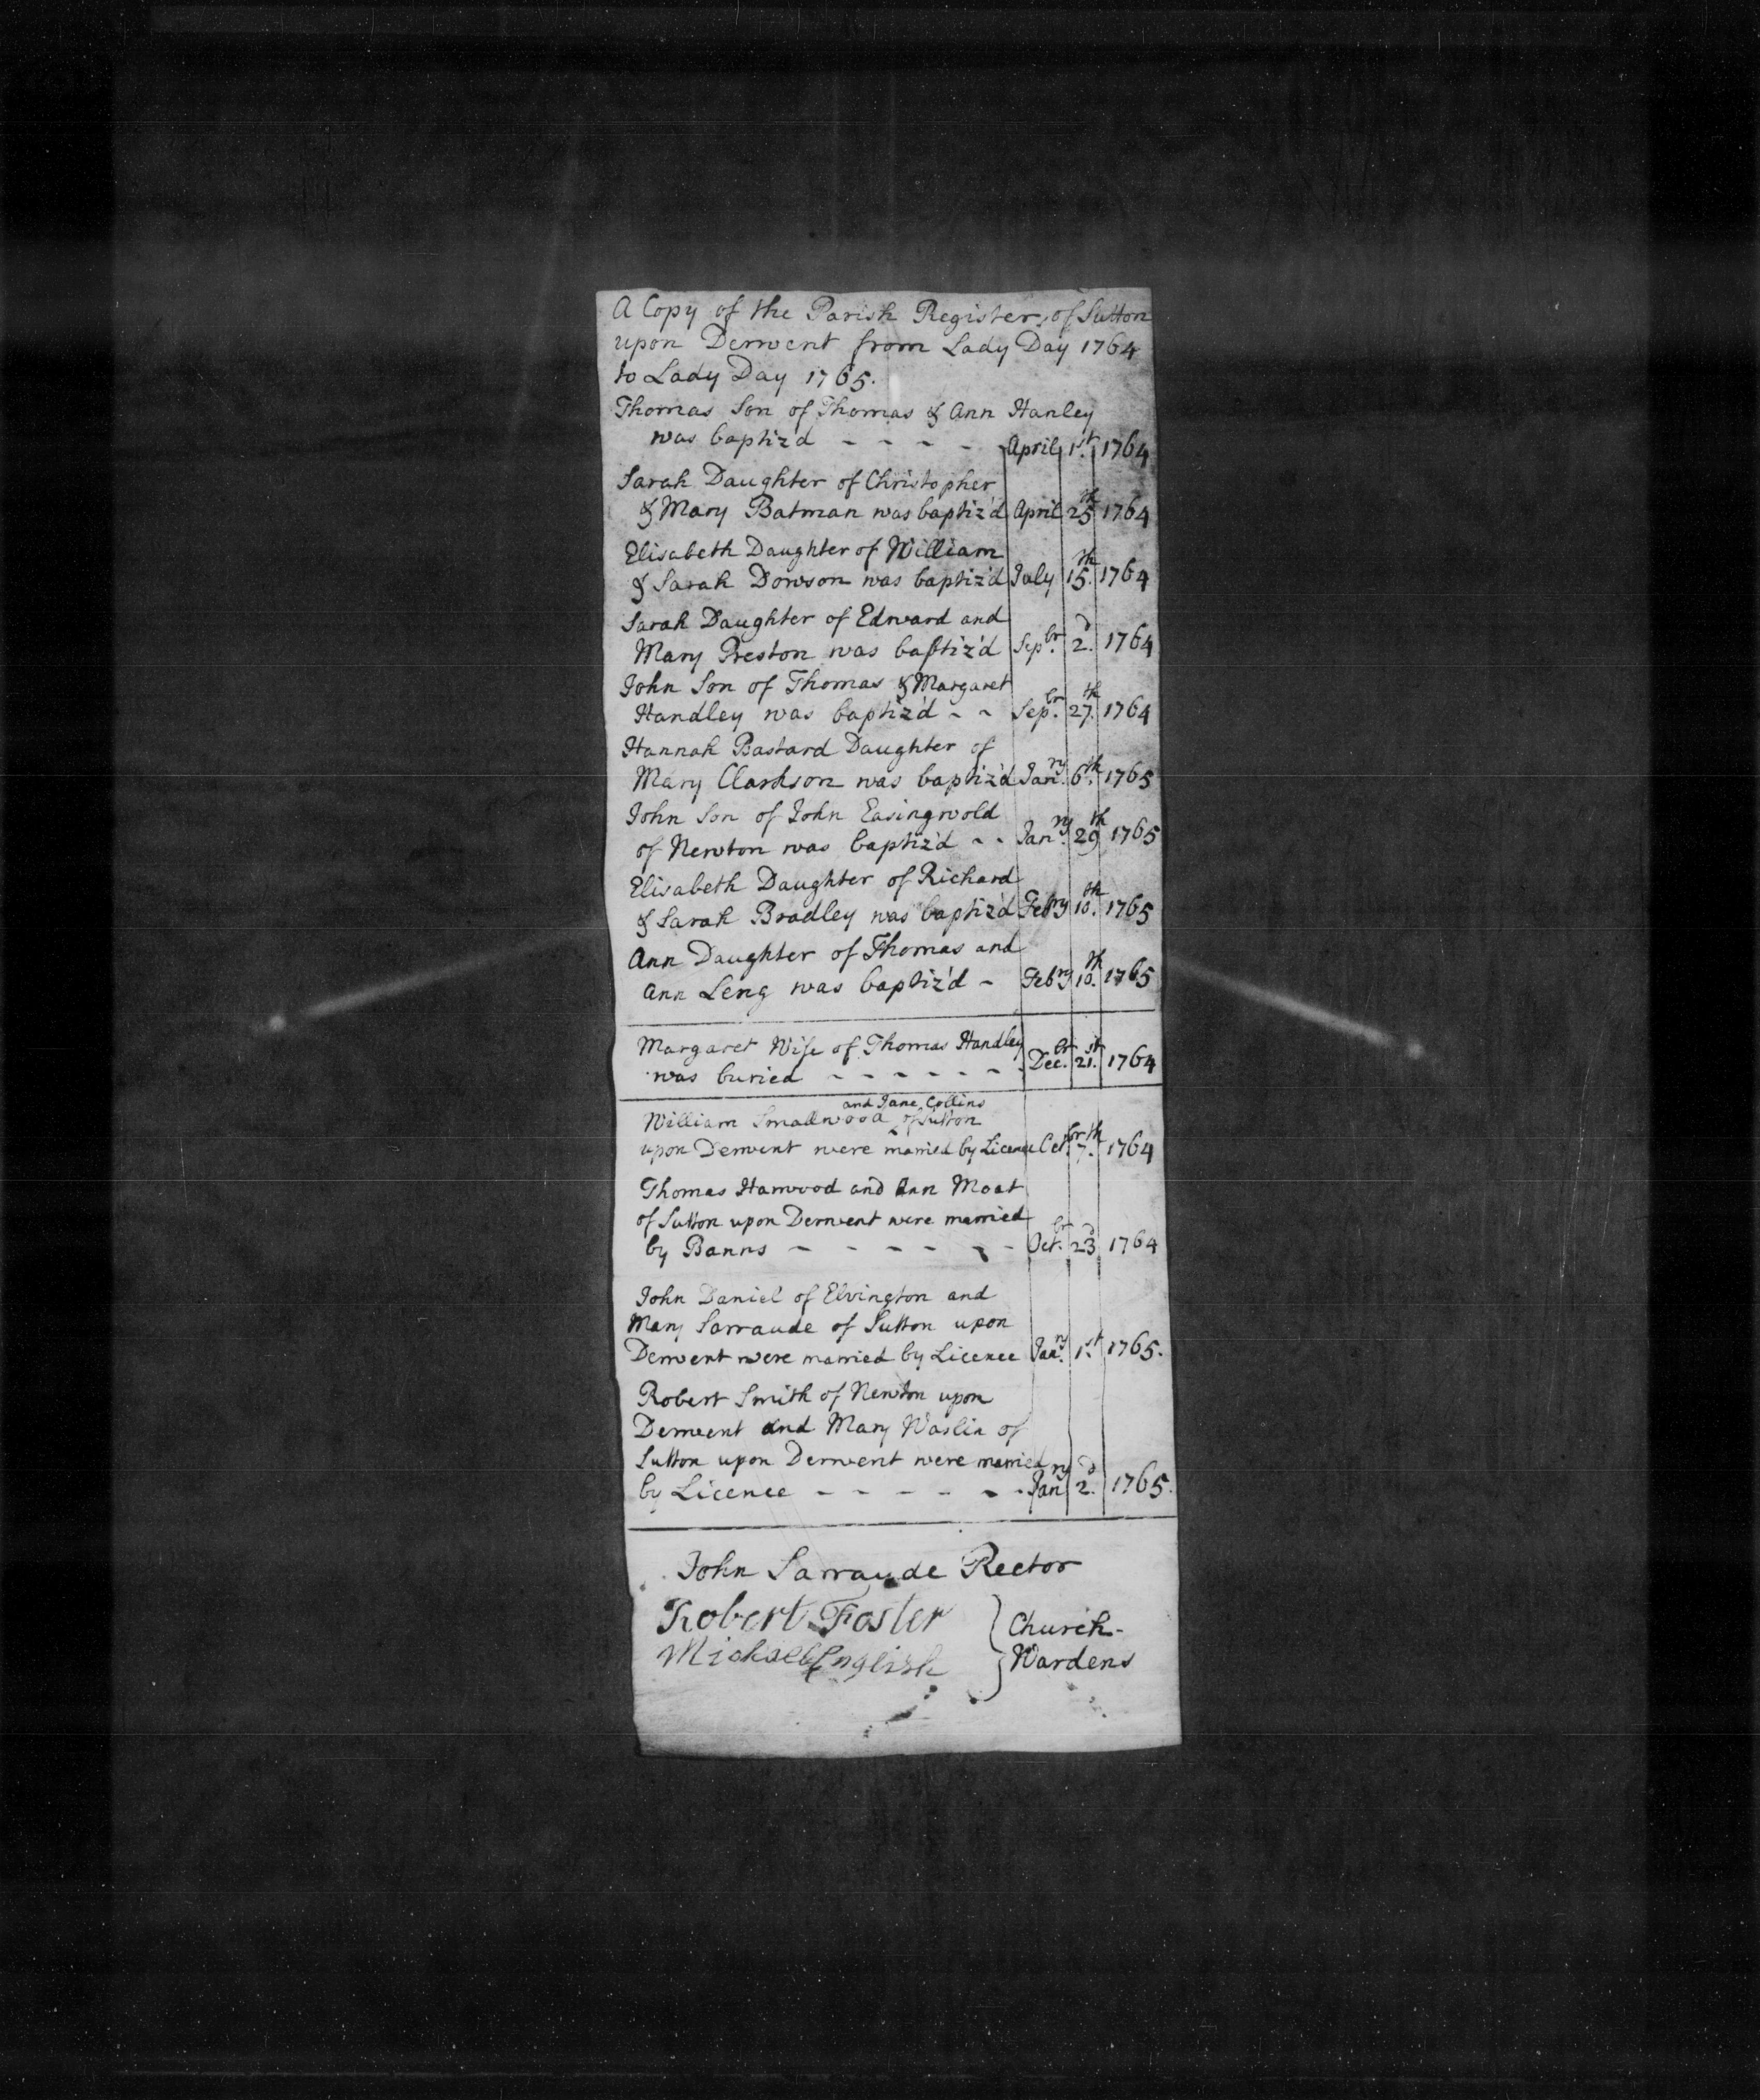 A Copy of the Parish Register, of Sutton
upon Derwent from Lady Day 1764
to Lady Day 1765.
Thomas Son of Thomas & Ann Hanley
was baptiz'd - - - - - April 1st. 1764
Sarah Daughter of Christopher
& Mary Batman was baptiz'd April 25th 1764
Elisabeth Daughter of William
& Sarah Dowson was baptiz'd July 15th. 1764
Sarah Daughter of Edward and
Mary Preston was baptiz'd Sepbr. 2d. 1764
John Son of Thomas & Margaret
Handley was baptiz'd - - Sepbr. 27th. 1764
Hannah Bastard Daughter of
Mary Clarkson was baptiz'd Janry. 6th. 1765
John Son of John Easingwold
of Newton was baptiz'd - - Janry. 29th 1765
Elisabeth Daughter of Richard
& Sarah Bradley was baptiz'd Febry 10th. 1765
Ann Daughter of Thomas and
Ann Leng was baptiz'd - Febry 10th. 1765
Margaret Wife of Thomas Handley
was buried - - - - - - Decbr. 21st. 1764
and Jane Collins
William Smallwood ‸ of Sutton
upon Derwent were married by Licence Octbr. 7th. 1764
Thomas Harwood and Ann Moat
of Sutton upon Derwent were married
by Banns - - - - - - Octbr. 23d 1764
John Daniel of Elvington and
Mary Sarraude of Sutton upon
Derwent were married by Licence Janry. 1st. 1765.
Robert Smith of Newton upon
Derwent and Mary Waslin of
Sutton upon Derwent were married
by Licence - - - - - - Janry 2d. 1765.
John Sarraude Rector
Robert Foster } Church-
Michael English } Wardens